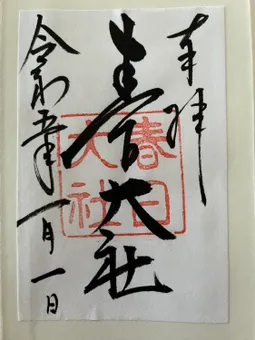 奉拝
春日大社
春日大社
令和五年一月一日